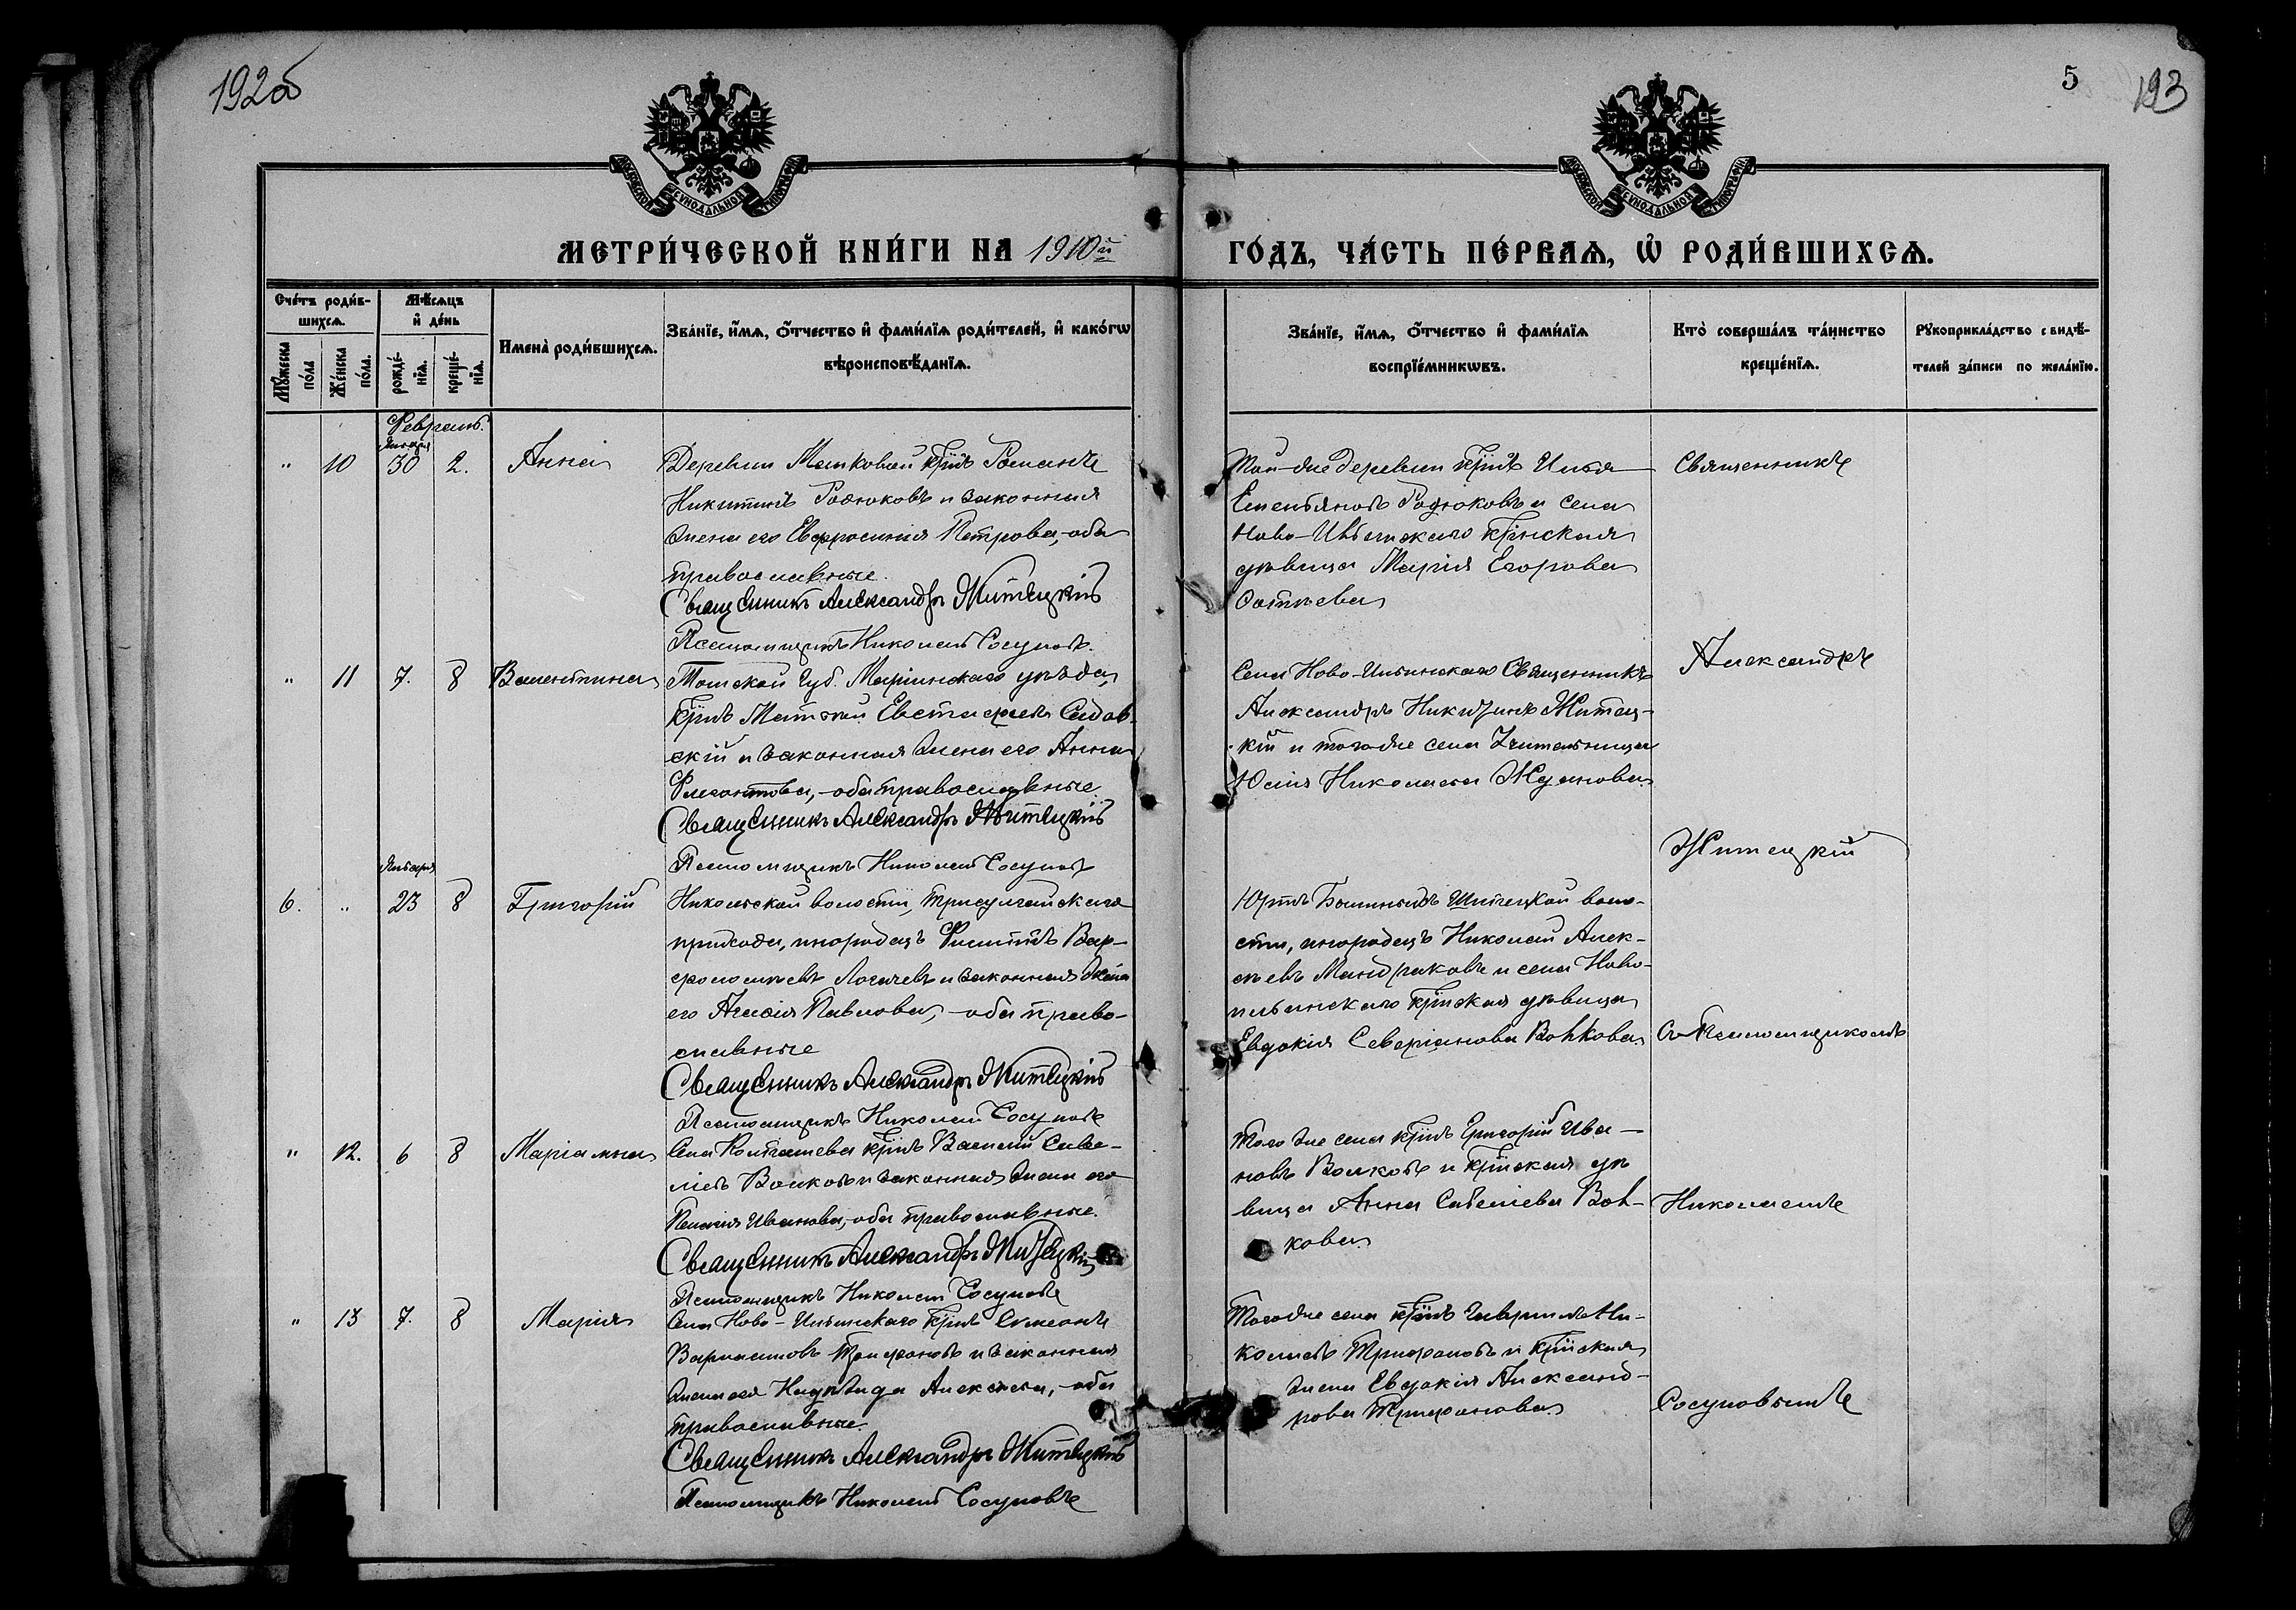 192об
5
193
МЕТРИ́ЧЕСКОЙ КНИ́ГИ НА 1910й
ГО́ДЪ, ЧА́СТЬ ПЕ́РВАѦ, Ѡ҆ РОДИ́ВШИХСѦ.
Сче́тъ роди́в-
шихсѧ.
Мꙋ́жеска по́ла
Же́нска по́ла.
Мѣ́сѧцъ
и҆ де́нь
рожде́-
нїѧ.
креще́-
нїѧ.
Имена̀ роди́вшихсѧ.
Зва́нїе, и҆́мѧ, ѻ҆́тчество и҆ фами́лїѧ роди́телей, и҆ како́гѡ
вѣроисповѣ́данїѧ.
Зва́нїе, и҆́мѧ, ѻ҆́тчество и҆ фами́лїѧ
воспрїе́мникѡвъ.
Кто̀ соверша́лъ та́инство
креще́нїѧ.
Рꙋкоприкла́дство свидѣ́-
телей за́писи по жела́нїю.
Февраль.
Января
" 10 30 2. Анна
Деревни Машковой кр҃нъ Романъ
Никитинъ Родюковъ и законная
жена его Евфросинія Петрова, оба
православные.
Священникъ Александръ Житецкій
Псаломщикъ Николай Сосуновъ.
Той-же деревни кр҃нъ Илья
Емельяновъ Родюковъ и села
Ново-Ильинскаго кр҃нская
дѣвица Марія Егорова
Священникъ
" 11 7. 8 Валентина
Томской губ. Маріинскаго уѣзда,
кр҃нъ Матвѣй Евстафьевъ Садов-
скій и законная жена его Анна
оба православные.
Священникъ Александръ Житецкій
Псаломщикъ Николай Сосуновъ
Села Ново-Ильинскаго Священникъ
Александръ Никитинъ Житец-
кій и тогоже села Учительница
Юлія Николаева Жданова.
Александръ
Житецкій
Января
6. " 23 8 Григорій
Никольской волости,
прихода, инородецъ Филиппъ Вар-
фоломеевъ Логачевъ и законная жена
его Агафія Павлова, оба право-
славные
Священникъ Александръ Житецкій
Псаломщикъ Николай Сосуновъ
Юртъ волo-
сти, инородецъ Николай Алек-
сѣевъ Мандраковъ и села Ново-
ильинскаго кр҃нская дѣвица
Евдокія Северіанова Волкова.
съ Псаломщикомъ
" 12. 6 8 Маріамна
Села Колташева кр҃нъ Василій Саве-
ліевъ Волковъ и законная жена его
Пелагія Иванова, оба православные.
Священникъ Александръ Житецкій
Псаломщикъ Николай Сосуновъ
Того же села кр҃нъ Григорій Ива-
новъ Волковъ и кр҃нская дѣ
вица Анна Савеліева Вол-
кова.
Николаемъ
" 13 7. 8 Марія
Села Ново-Ильинскаго кр҃нъ Симеонъ
Варлаамовъ Трифоновъ и законная
жена его Надежда Алексѣева, оба
православные.
Священникъ Александръ Житецкій
Псаломщикъ Николай Сосуновъ
Тогоже села кр҃нъ Гавріилъ Ни-
колаевъ Трифоновъ и кр҃нская
жена Евдокія Александ-
рова Трифонова.
Сосуновымъ